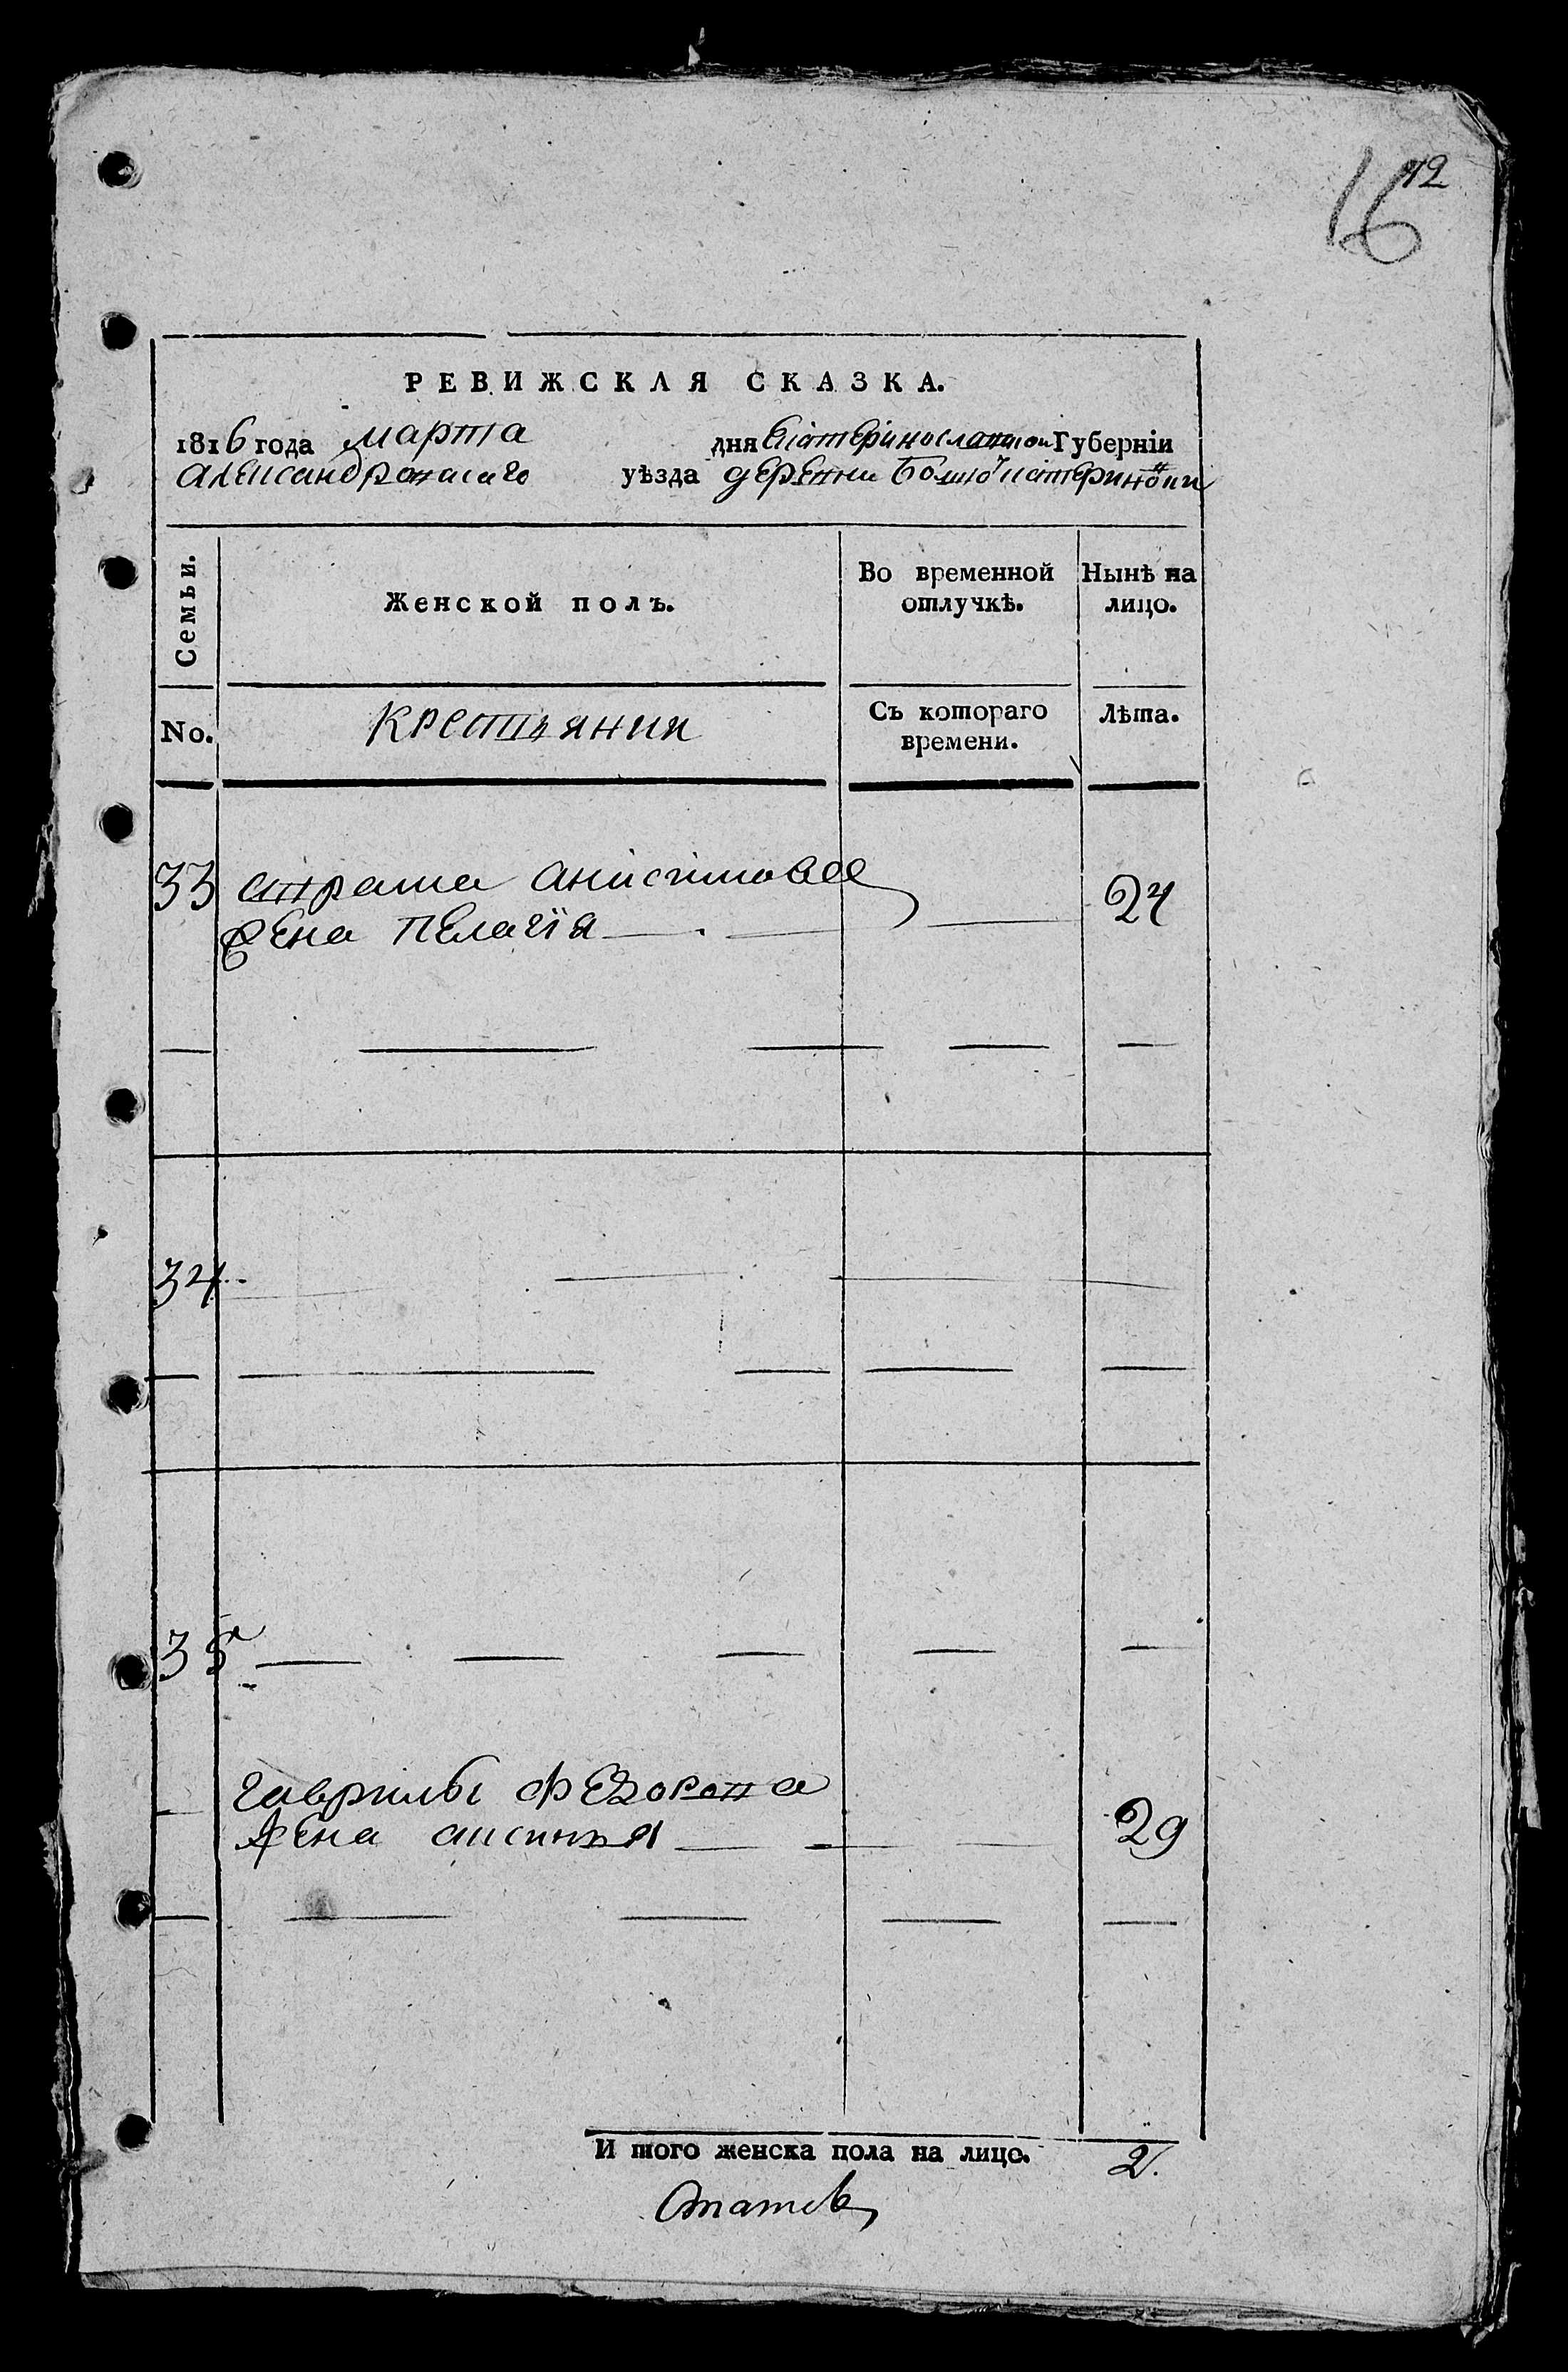 12
16
РЕВИЖСКАЯ СКАЗКА.
1816 года марта дня Екатеринославской Губерніи
александровскаго уѣзда деревни Екатериновки
Семьи.
Женской полъ.
Во временной отлучкѣ.
Нынѣ на лицо.
No.
Крестьянин
Съ котораго времени.
Лѣта.
33 анисимова
жена пелагїя 24
34
35
гаврилы федорова
жена аксинья 29
И того женска пола на лицо. 2.